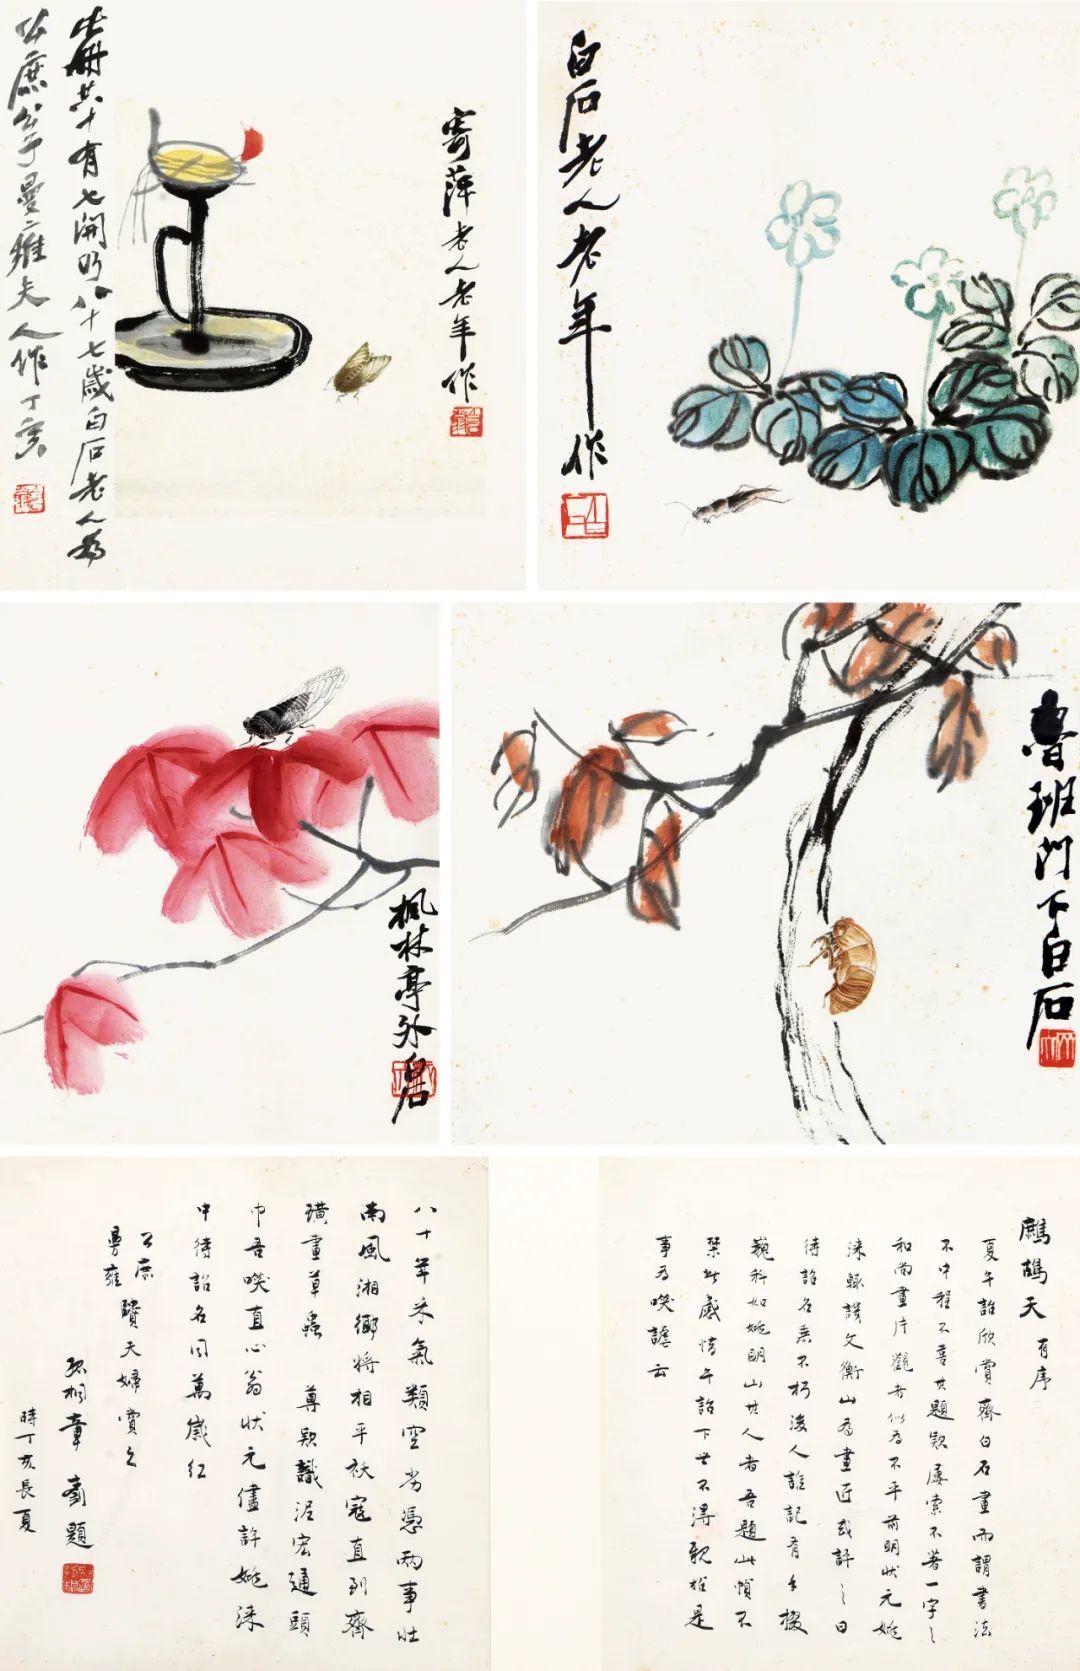 寄萍老人老年作
此冊共十有七開乃八十七歲白石老人為
公庶公子曼雍夫人作丁亥
白石老人老年作
楓林亭外白石
魯班門下白石
鷓鴣天 有序
夏午詒欣賞齊白石畫而謂書法
不中程不喜其題款屢索不著一字之
和尚畫片觀者似為不平前明狀元姚
淶輒謾文衡山為畫匠或評之曰
待詔名垂不朽後人誰記有手掇
巍科如姚明山其人者吾題此幀不
禁此感情午詒下世不得親於是
事為噗謔云
八十年來氣類空尚憑兩事壯
南風湘鄉將相平祅寇直到齊
璜畫草蟲 尊款識泥宏通頭
巾吾噗直心翁狀元儘許姚淶
中待詔名同萬歲紅
公庶
曼雍
賢夫婦賞之
孤桐章釗題
時丁亥長夏